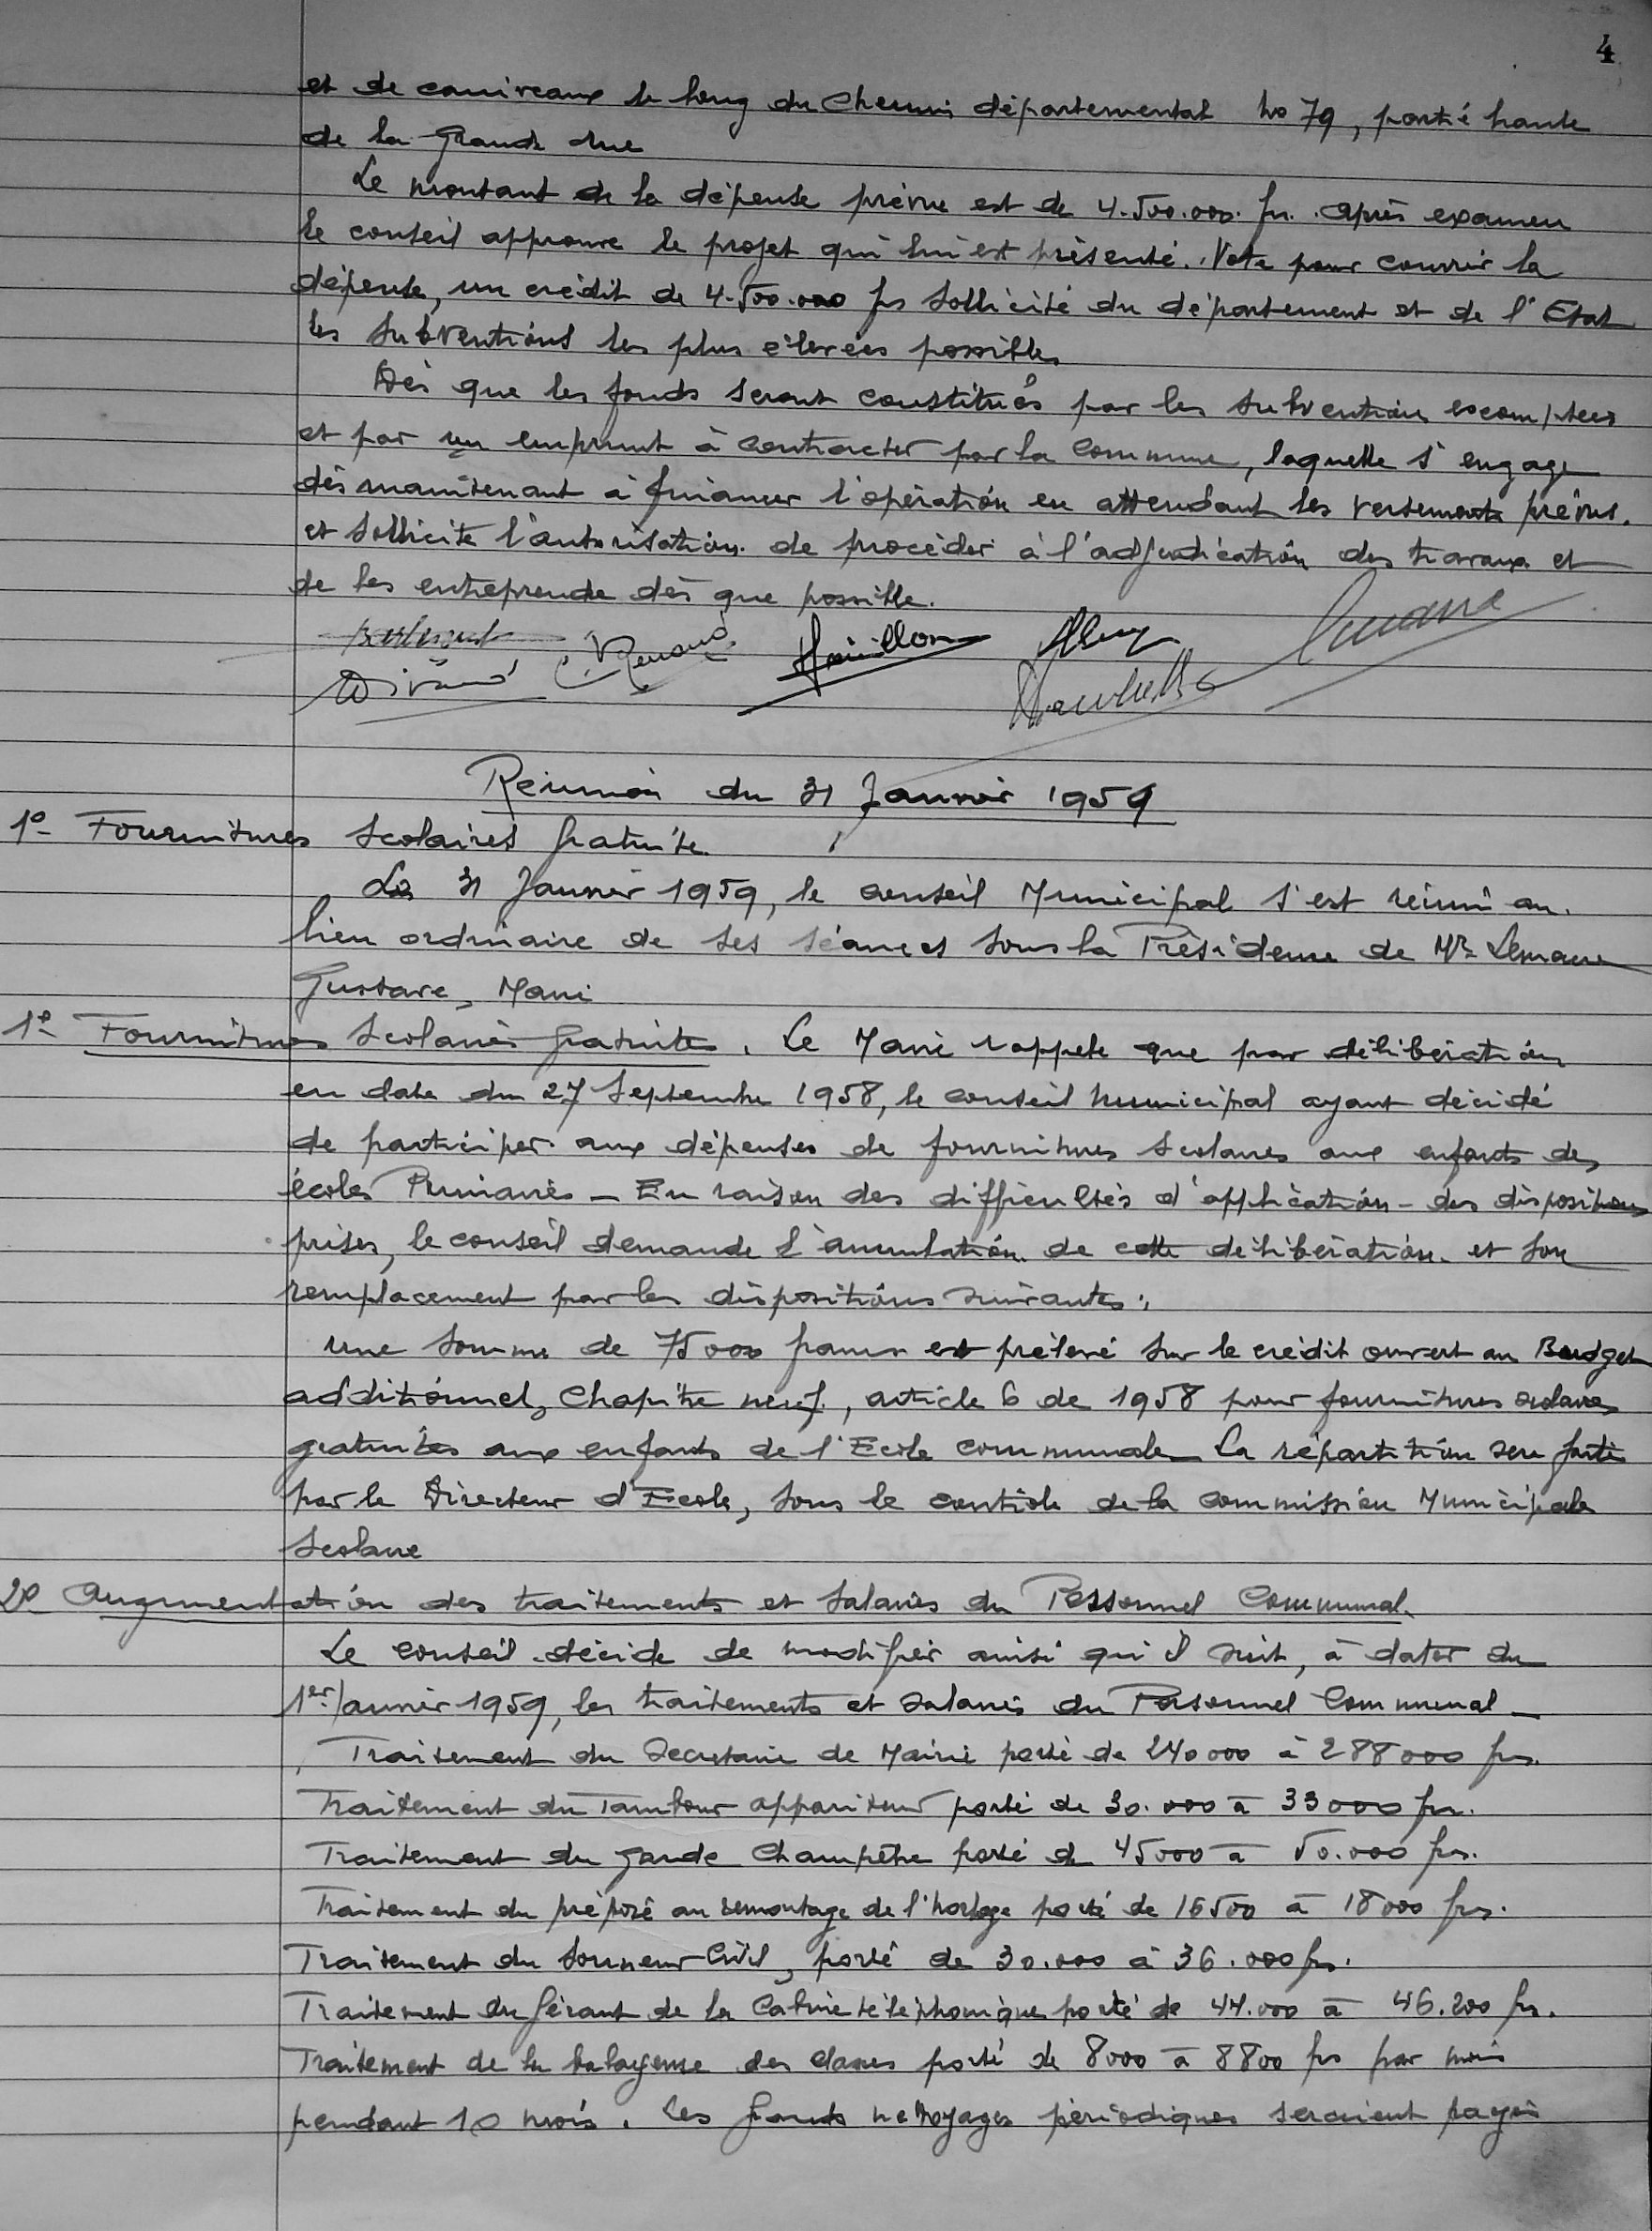 4
et de caniveaux le long du Chemin départemental no 79, partie haute
de la Grande rue
Le montant de la dépense prévue est de 4.500.000. frs. après examen
le conseil approuve le projet qui lui est présenté. Vote pour couvrir la
dépense, un crédit de 4.500.000 frs sollicité du département et de l'Etat
les subventions les plus élevées possibles
Dès que les fonds seront constitués par les subventions escomptées
et par un emprunt à contracter par la Commune, laquelle s'engage
dès maintenant à financer l'opération en attendant les versements prévus.
et sollicite l'autorisation de procéder à l'adjudication des travaux et
de les entreprendre dès que possible.
Réunion du 31 Janvier 1959
1º- Fournitures Scolaires Gratuite.
Le 31 Janvier 1959, le conseil Municipal s'est réuni au
lieu ordinaire de ses séances sous la Présidence de Mr Lemaire
Gustave, Maire
1º- Fournitures Scolaires Gratuites. Le Maire rappelle que par délibération
en date du 27 Septembre 1958, le conseil municipal ayant décidé
de participer aux dépenses de fournitures scolaires aux enfants des
écoles Primaires - En raison des difficultés d'application - des dispositions
prises, le conseil demande l'annulation de cette délibération et son
remplacement par les dispositions suivantes:
une somme de 75000 francs est prélevé sur le crédit ouvert au Budget
additionnel, Chapitre neuf, article 6 de 1958 pour fournitures scolaires
gratuites aux enfants de l'Ecole communale - La répartition sera faite
par le Directeur d'Ecole, sous le contrôle de la commission Municipale
Scolaire
2º- Augmentation des traitements et salaires du Personnel Communal.
Le conseil décide de modifier ainsi qu'il suit, à dater du
1er Janvier 1959, les traitements et salaires du Personnel Communal -
Traitement du Secretaire de Mairie porté de 240000 à 288000 frs.
Traitement du Tambour appariteur porté de 30.000 à 33000 frs.
Traitement du garde Champêtre porté de 45000 à 50.000 frs.
Traitement du préposé au remontage de l'horloge porté de 16500 à 18000 frs.
Traitement du sonneur Civil, porté de 30.000 à 36.000 frs.
Traitement du gérant de la Cabine téléphonique porté de 44.000 à 46.200 frs.
Traitement de la balayeuse des classes porté de 8000 à 8800 frs par mois
pendant 10 mois. Les grands nettoyages périodiques seraient payés